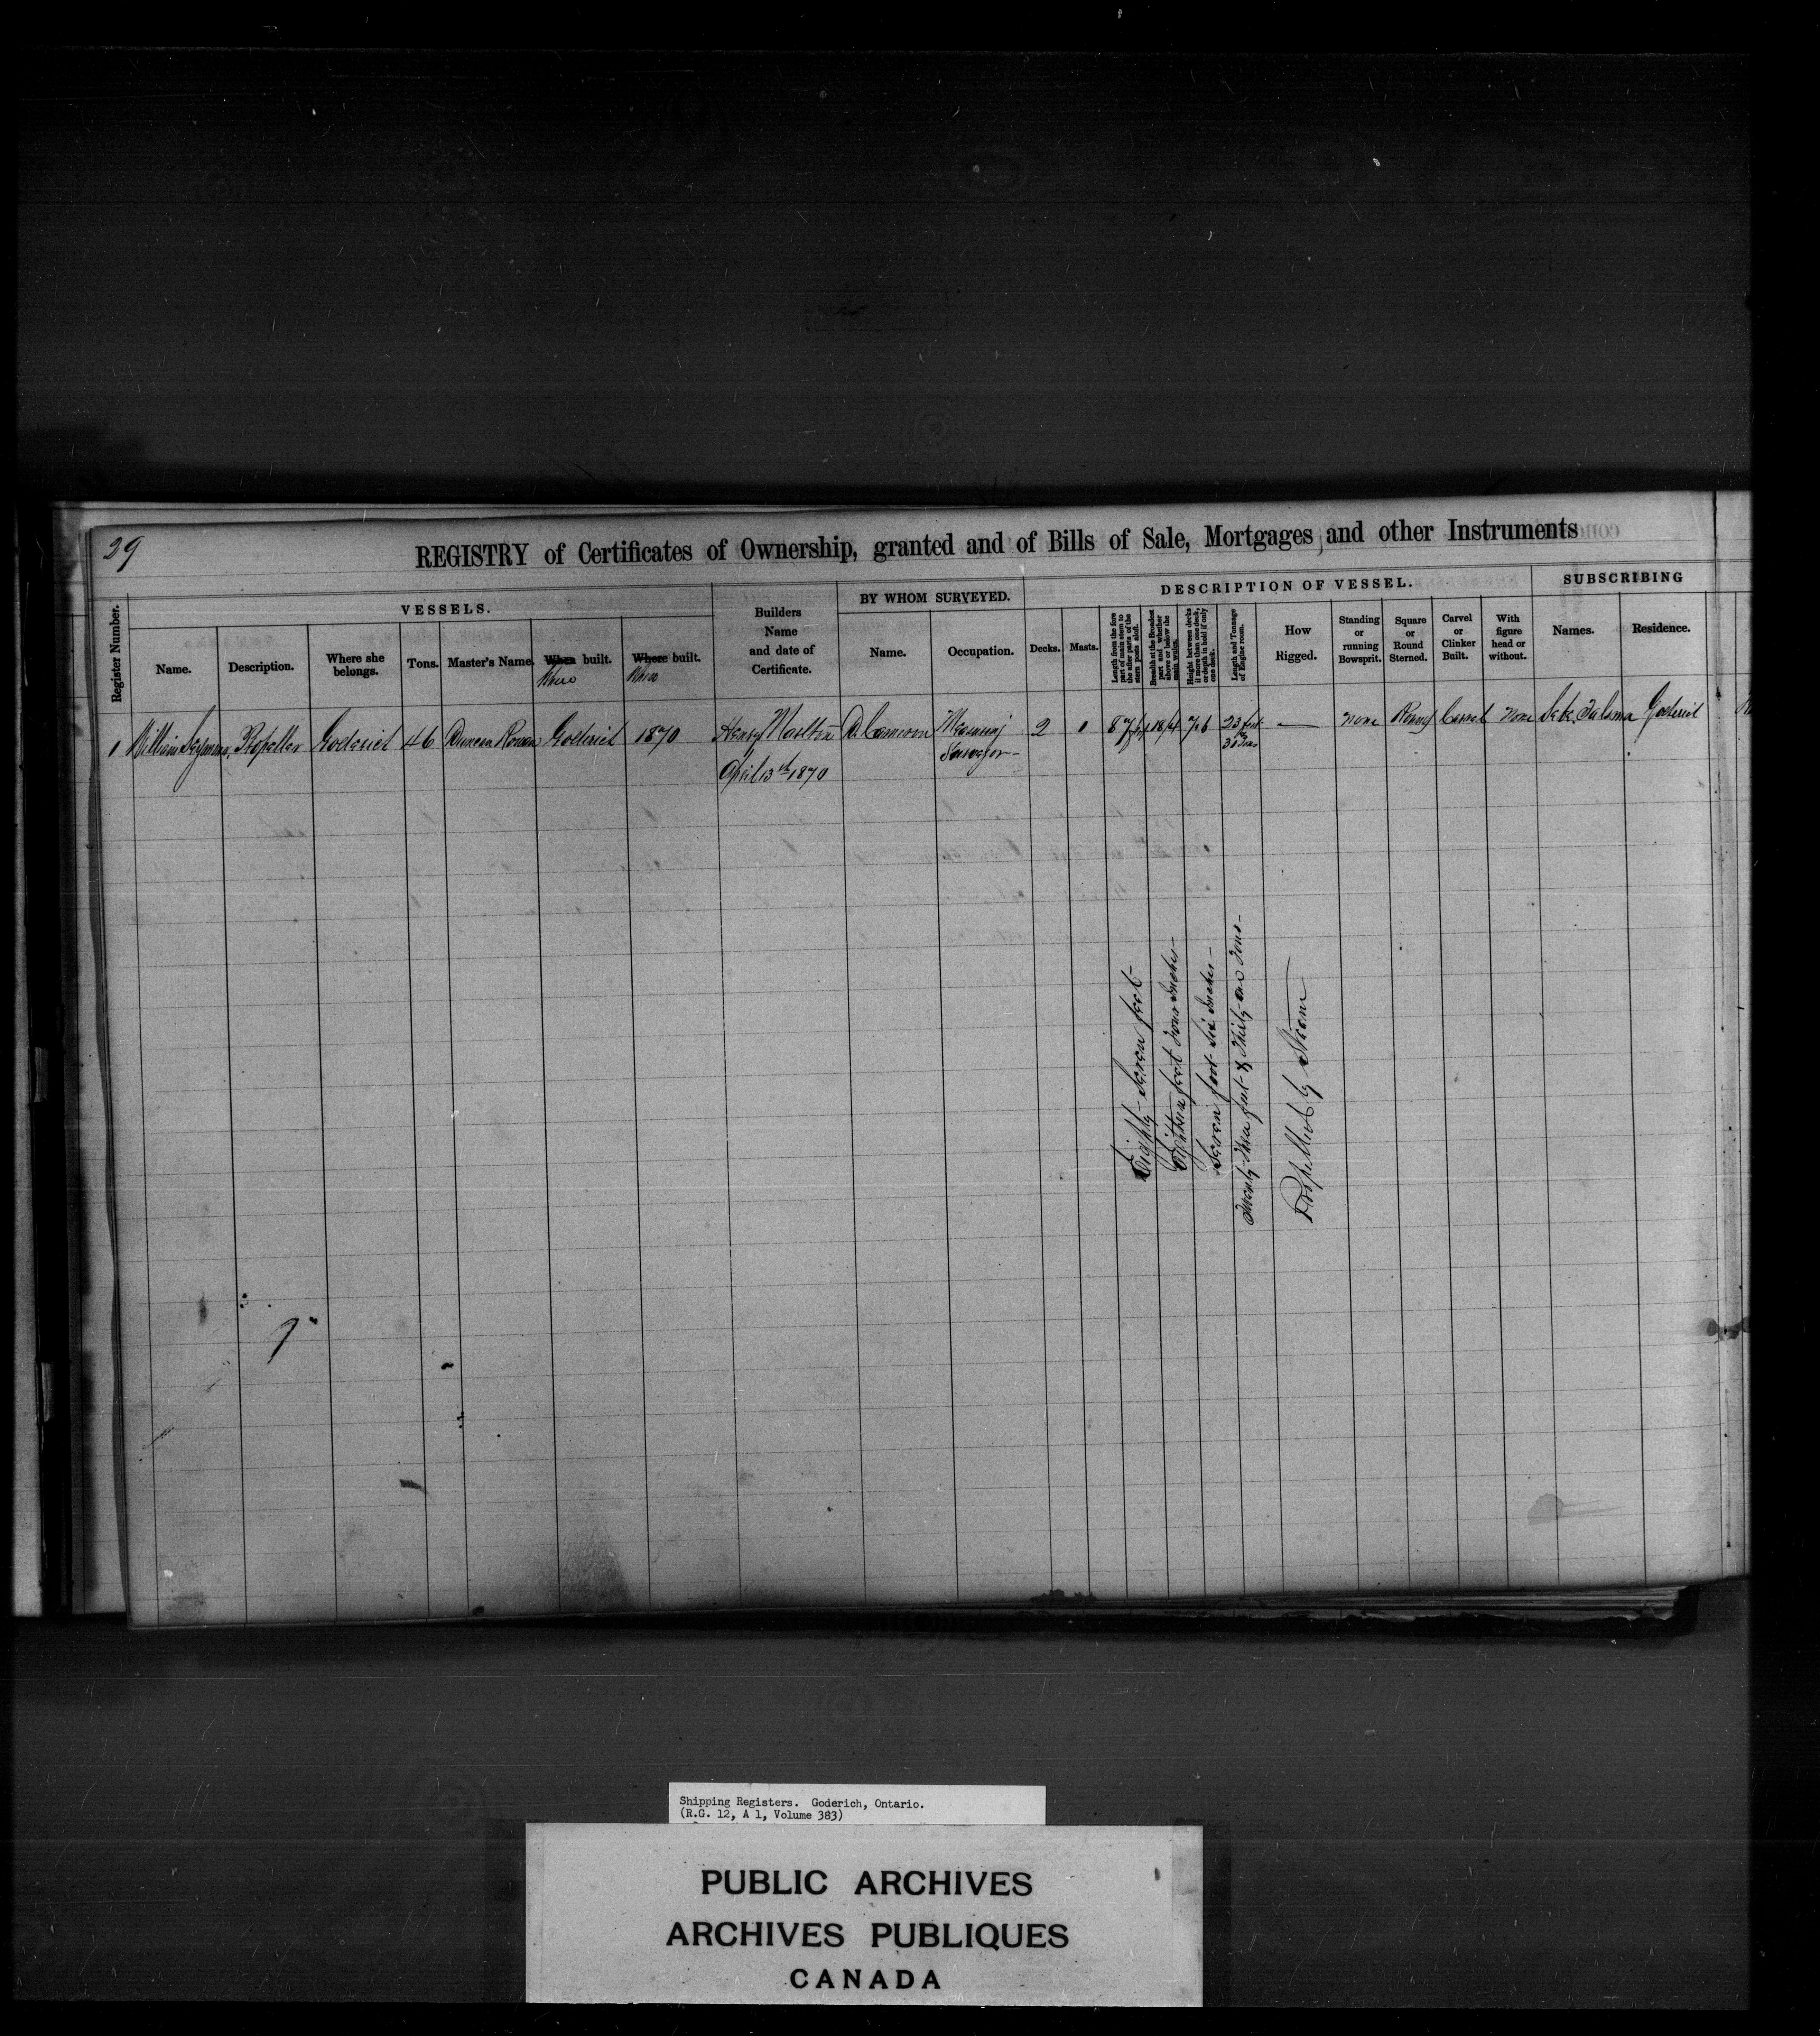 39
REGISTRY of Certificates of Ownership, granted and of Bills of Sale, Mortgages, and other Instruments
Register Number.
VESSELS.
Name.
Description.
Where she belongs.
Tons.
Master's Name.
When built.
Where
Where built.
When
Builders
Name
and date of
Certificate.
BY WHOM SURVEYED.
Name.
Occupation.
DESCRIPTION OF VESSEL.
Decks.
Masts.
Length from the fore
part of main stem to
the after parts of the
stern posts aloft.
Breadth at the Broadest
part and whether
above or below the
main wales.
Height between decks
if more than one deck,
or depth in hold if only
one deck.
Length and Tonnage
of Engine room.
How
Rigged.
Standing
or
running
Bowsprit.
Square
or
Round
Sterned.
Carvel
or
Clinker
Built.
With
figure
head or
without.
SUBSCRIBING
Names.
Residence.
1 William Seymour Propeller Goderich 46 Duncan Rowan Goderich 1870 Henry Marlton A. Cameron Measuring 2 0 87 ft 18 ft 4 7 6 23 feet — none Round Carvel None Goderich
Surveyor - & 31 Tons
April 13th 1870
Eighty-Seven feet-
Eighteen feet Four Inches-
Seven feet Six Inches-
Twenty-Three feet & Thirty-one Tons-
Propelled by Steam
Shipping Registers. Goderich, Ontario.
(R.G. 12, A 1, Volume 383)
PUBLIC ARCHIVES
ARCHIVES PUBLIQUES
CANADA